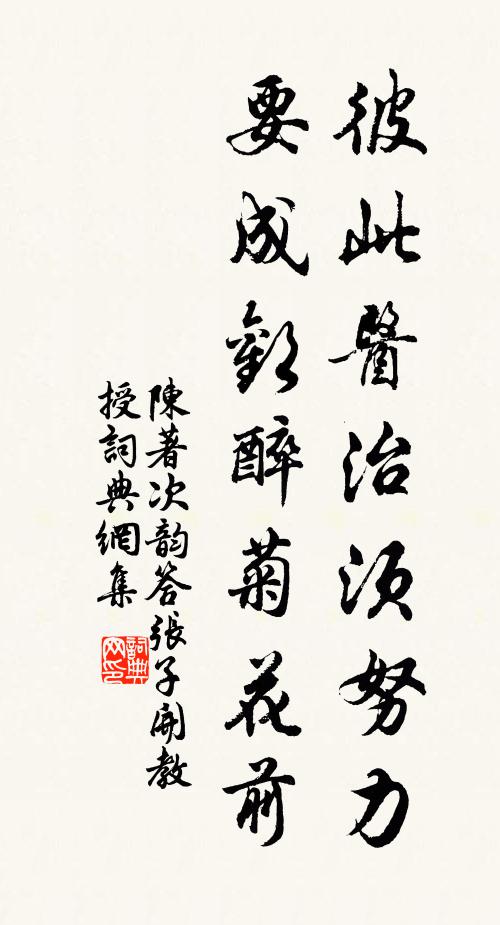 彼此醫治須努力
要成歡醉菊花前
陳著次韵答張子開教
授詞典網集
詞典
网印